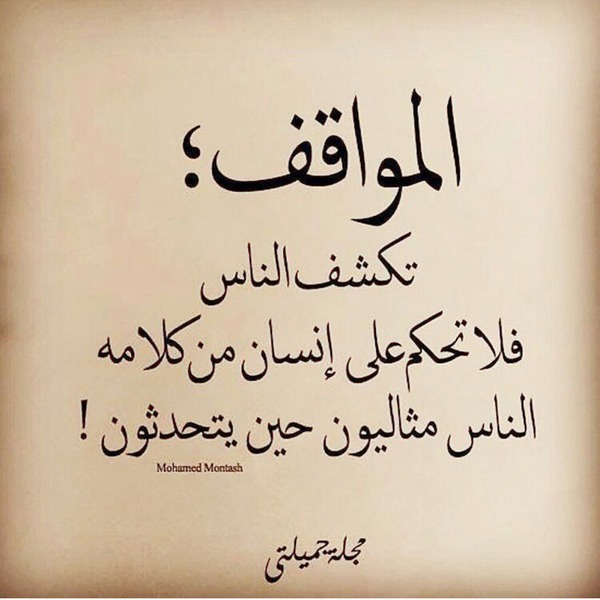 المواقف؛
تكشف الناس
فلا تحكم على إنسان من كلامه
الناس مثاليون حين يتحدثون !
Mohamed Montash
مجلة جميلتي